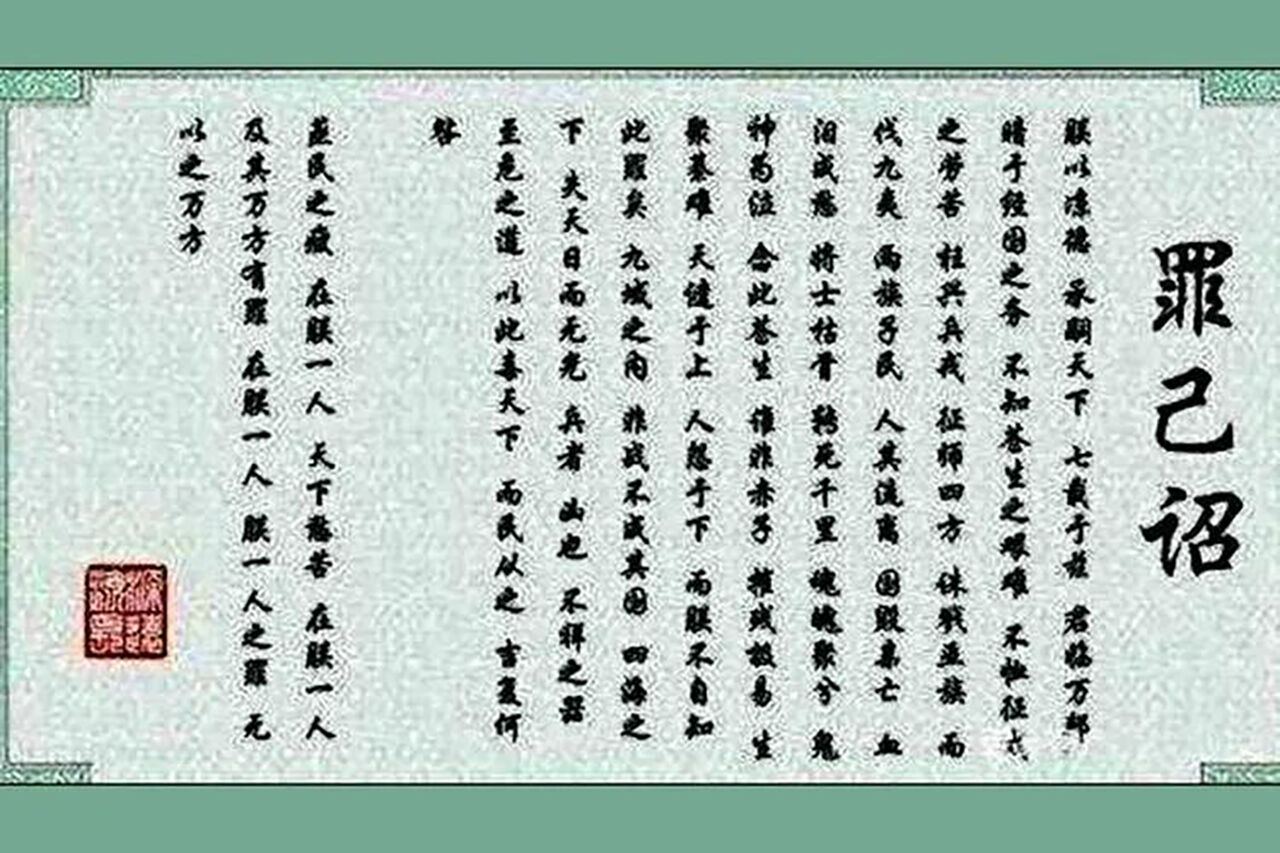 罪己诏
朕以凉德 承嗣天下 七载于兹 君临万邦
暗于经国之务 不知苍生之艰难 不恤征戍
之劳苦 枉兴兵戎 征师四方 诛戮 族 而
伐九夷 两族子民 人其流离 国毁 亡 血
泪成愁 将士枯骨 转死千里 魂魄聚兮 鬼
神为泣 念此苍生 谁非赤子 摧残极易 生
聚綦难 天谴于上 人怨于下 而朕不自知
此罪矣 九域之内 非战不成其国 四海之
下 失天日而无光 兵者 凶也 不祥之器
至危之道 以此毒天下 而民从之 吉复何
咎
民之 在朕一人 天下愁苦 在朕一人
及其万方有罪 在朕一人 朕一人之罪 无
以之万方